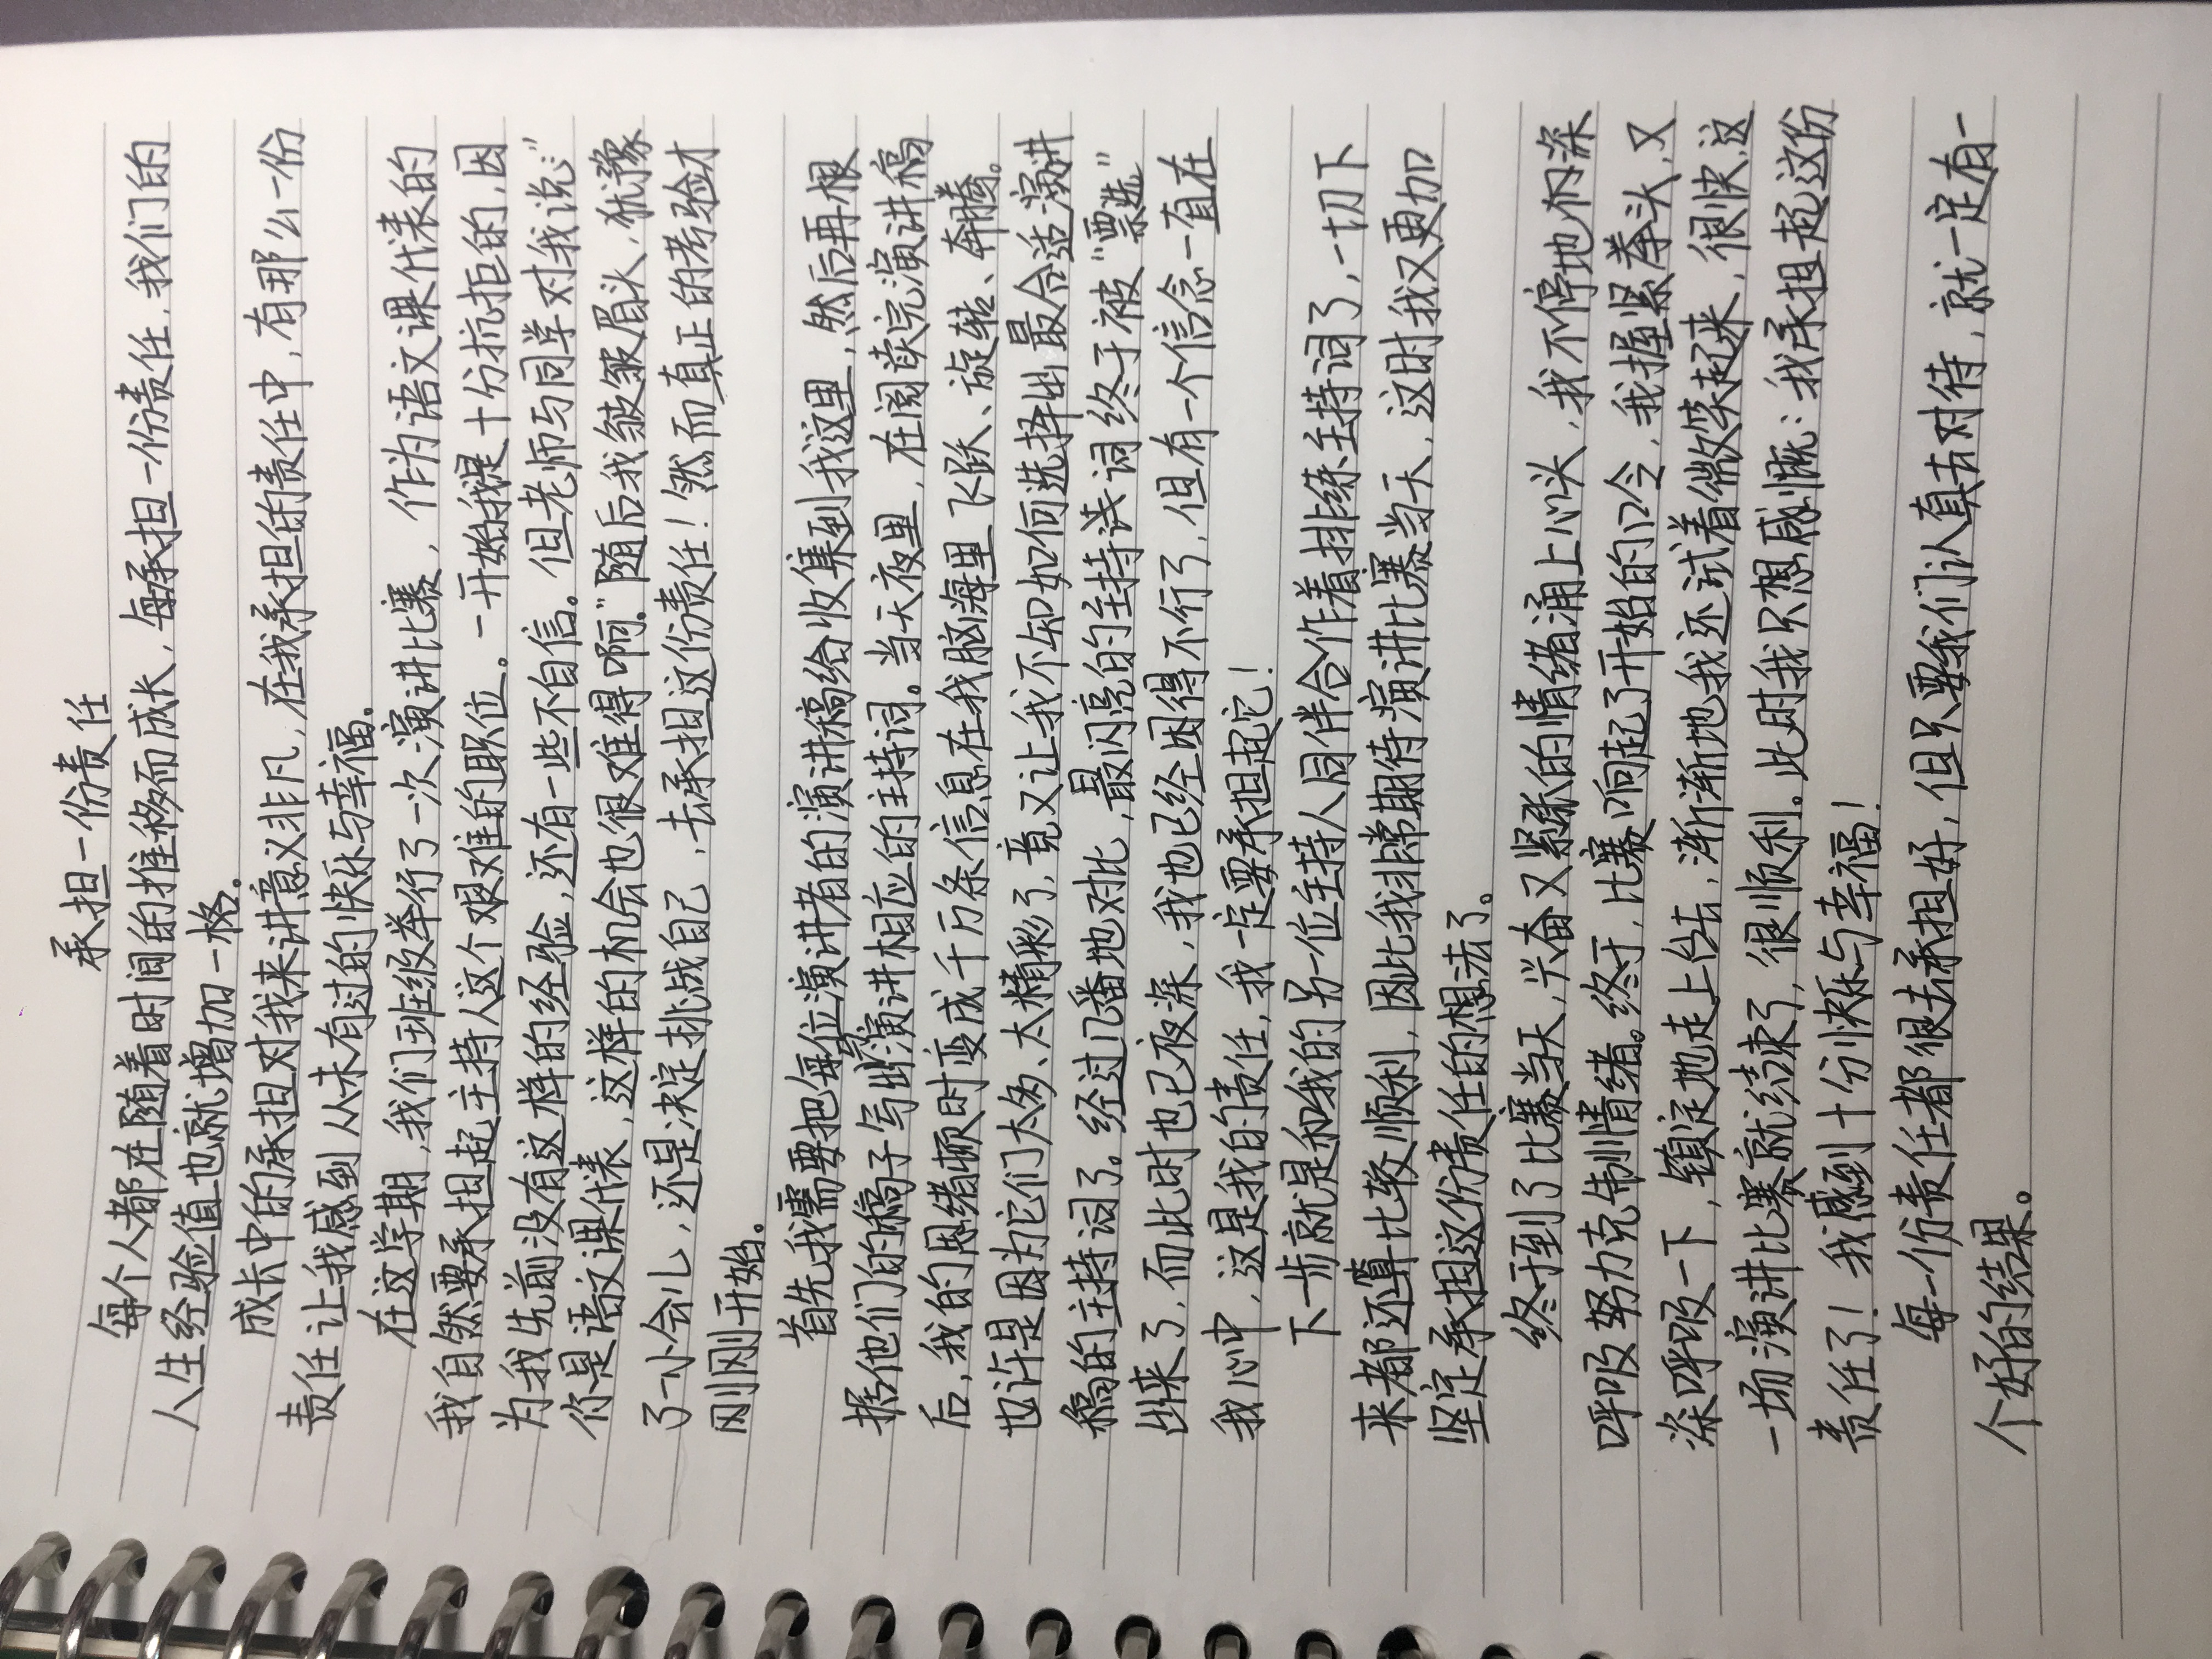 承担一份责任
每个人都在随着时间的推移而成长,每承担一份责任,我们的
人生经验值也就增加一格。
成长中的承担对我来讲意义非凡,在我承担的责任中,有那么一份
责任让我感到从未有过的快乐与幸福。
在这学期,我们班级举行了一次演讲比赛,作为语文课代表的
我自然要承担起主持人这个艰难的职位。一开始我是十分抗拒的,因
为我先前没有这样的经验,还有一些不自信。但老师与同学对我说:"
你是语文课代表,这样的机会也很难得啊。"随后我皱皱眉头,犹豫
了一小会儿,还是决定挑战自己,去承担这份责任!然而真正的考验才
刚刚开始。
首先我需要把每位演讲者的演讲稿给收集到我这里,然后再根
据他们的稿子写出演讲相应的主持词。当天夜里,在阅读完演讲稿
后,我的思绪顿时变成千万条信息在我脑海里飞跃、旋转、奔腾。
也许是因为它们太多、太精彩了,竟又让我不知如何选择出最合适演讲
稿的主持词了。经过几番地对比,最闪亮的主持词终于被"票选"
出来了,而此时也已夜深,我也已经困得不行了,但有一个信念一直在
我心中,这是我的责任,我一定要承担起它!
下一步就是和我的另一位主持人同伴合作着排练主持词了,一切下
来都还算比较顺利,因此我非常期待演讲比赛当天,这时我又更加
坚定承担这份责任的想法了。
终于到了比赛当天,兴奋又紧张的情绪涌上心头,我不停地向深
呼吸努力克制情绪。终于,比赛响起了开始的口令,我握紧拳头,又
深呼吸一下,镇定地走上台去,渐渐地我还试着微笑起来,很快,这
一场演讲比赛就结束了,很顺利。此时我只想感慨:我承担起这份
责任了!我感到十分快乐与幸福!
每一份责任都很去承担好,但只要我们认真去对待,就一定有一
个好的结果。